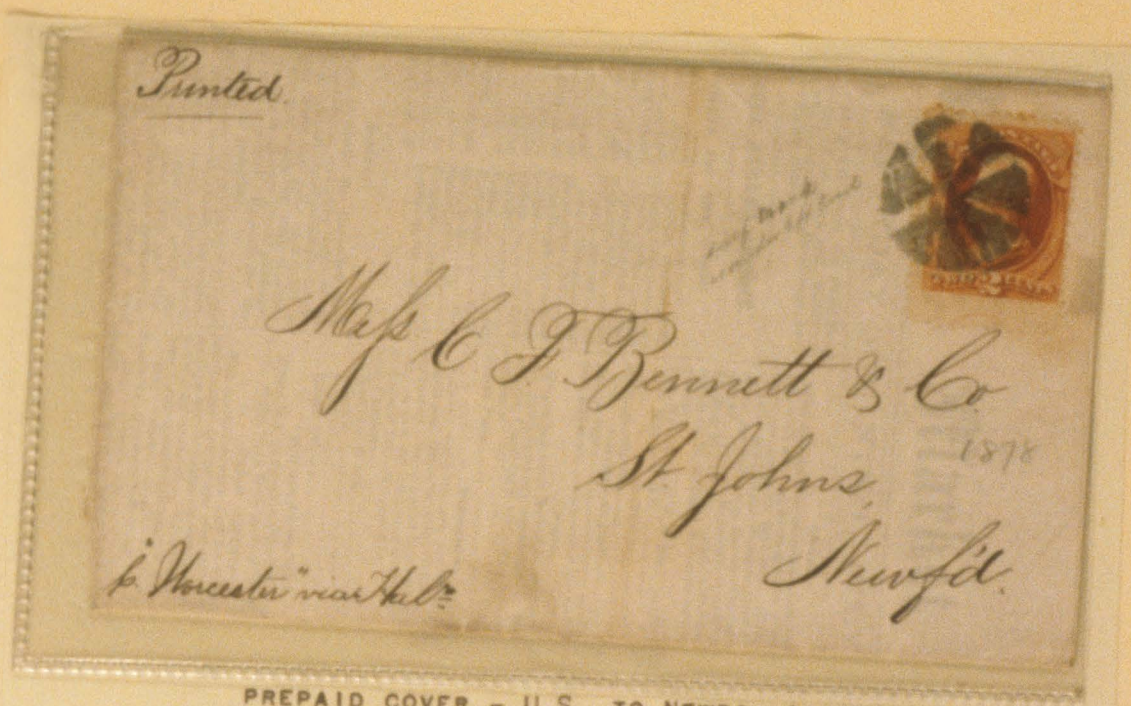 Printed.
Mess C F Bennett & Co.
St. Johns,
Newf'd.
1878
p. "Worcester" via Halx
2 CENTS
PREPAID COVER - U.S. TO